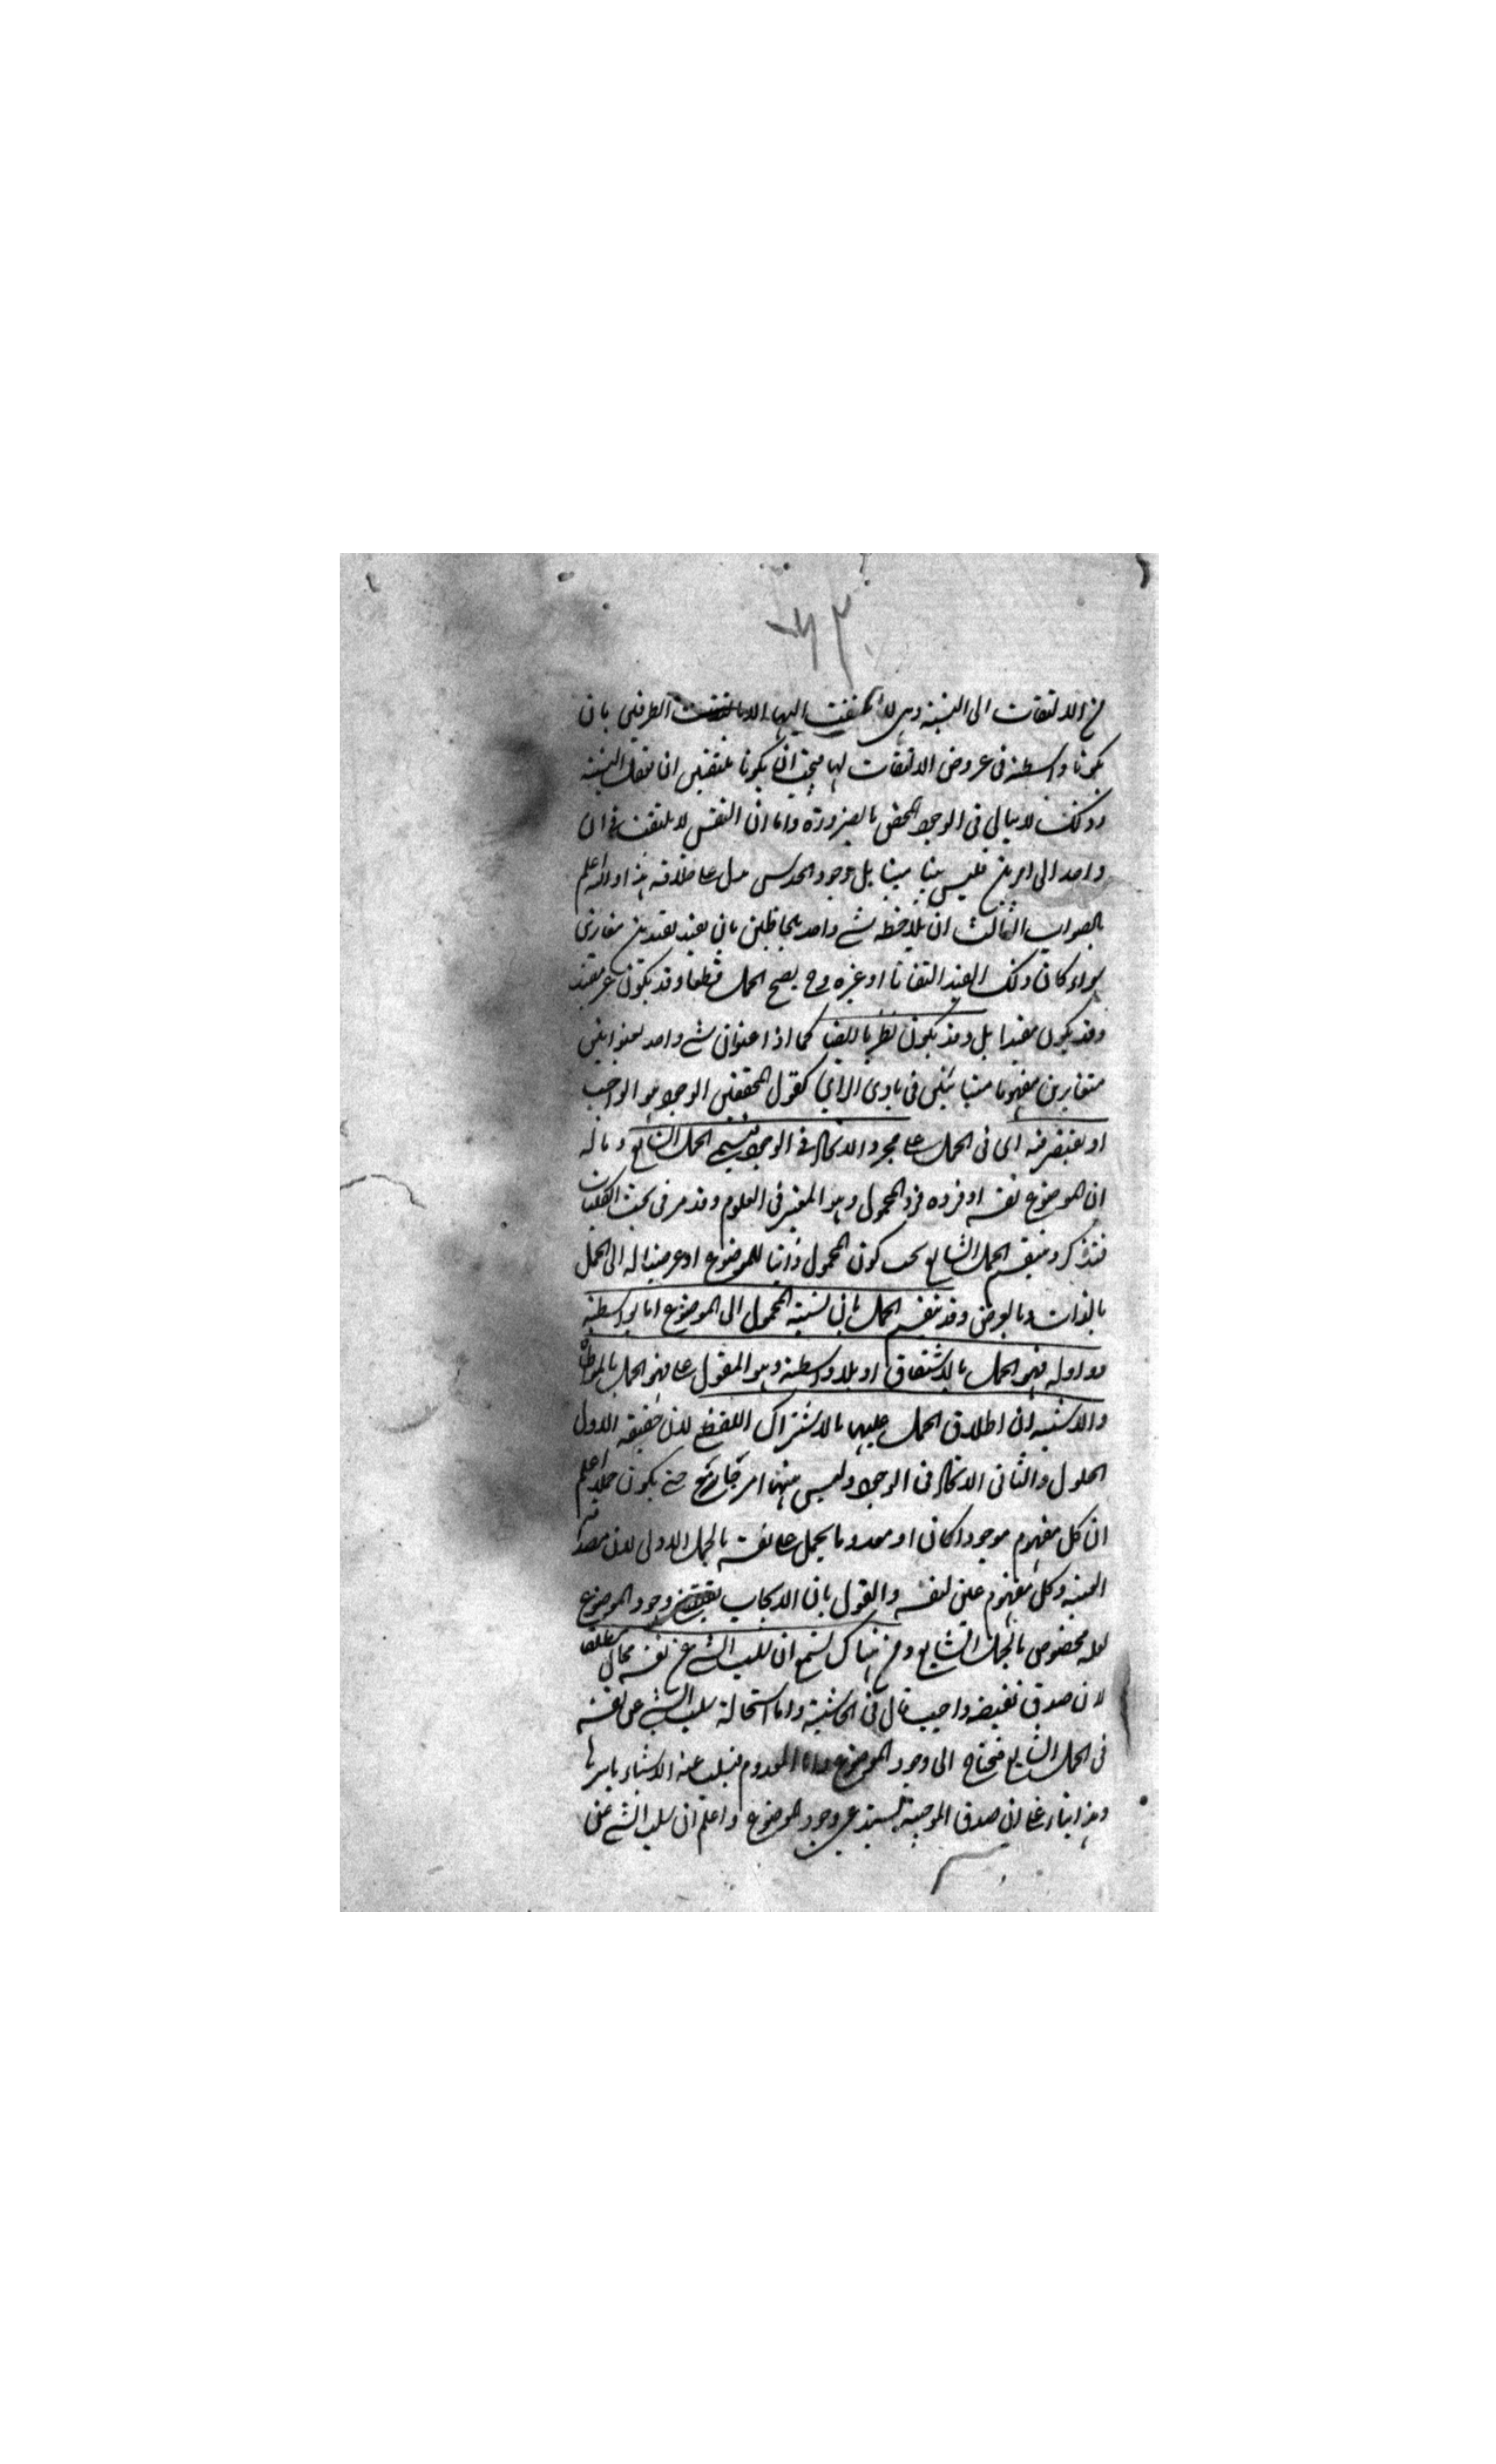 من الالتفات الى النسبة وهى لا يلتفت اليها الا بالتفات الطرفين بان
يكونا واسطة فى عروض الالتفات لها فيجب ان يكونا ملتفتين ان تعقل النسبة
وذلك لا ينافي فى الوجود المحض بالضرورة واما ان النفس لا يلتفت فى ان
واحد الى امرين فليس بينا ولا مبينا بل وجود الحدس يدل على خلافه هذا والله اعلم
بالصواب الثالث ان يلاحظ شے واحد بلحاظين بان يقيد بقيدين متغايرين
سواء كان ذلك القيد التفاتا او غيره وح يصح الحمل قطعا وقد يكون غير مقيد
وقد يكون مفيدا بل وقد يكون نظريا ايضا كما اذا عنوان شے واحد بعنوانين
متغايرين مفهوما متباينين فى بادى الراي كقول المحققين الوجود هو الواجب
او يقتصر فيه اى فى الحمل على مجرد الاتحاد فى الوجود فيسمى الحمل الشايع وماله
ان الموضوع نفسه او فرده فرد المحمول وهو المعتبر فى العلوم وقد مر فى بحث الكليات
فتذكر وينقسم الحمل الشايع بحسب كون المحمول ذاتيا للموضوع او عرضيا له الى الحمل
بالذات وبالعرض وقد ينقسم الحمل بان نسبة المحمول الى الموضوع اما بواسطة
فى او ذو او له فهو الحمل بالاشتقاق او بلا واسطة وهو المقول على فهو الحمل بالمواطاة
والاشبه ان اطلاق الحمل عليهما بالاشتراك اللفظى لان حقيقة الاول
الحلول والثانى الاتحاد فى الوجود وليس بينهما امر جامع حتى يكون حملا اعلم
ان كل مفهوم موجودا كان او معدوما يحمل على نفسه بالحمل الاولى لان مصداقه
العينية وكل مفهوم عين نفسه والقول بان الايجاب يقتضى وجود الموضوع
لعله مخصوص بالحمل الشايع ومن هناك تسمع ان سلب الشے عن نفسه محال مطلقا
لان صدق نقيضه واجب قال فى الحاشية واما استحالة سلب الشے عن نفسه
فى الحمل الشايع فتحتاج الى وجود الموضوع واما المعدوم فيسلب عنه الاشياء باسرها
وهذا بناء على ان صدق الموجبة يستدعى وجود الموضوع واعلم ان سلب الشے عن